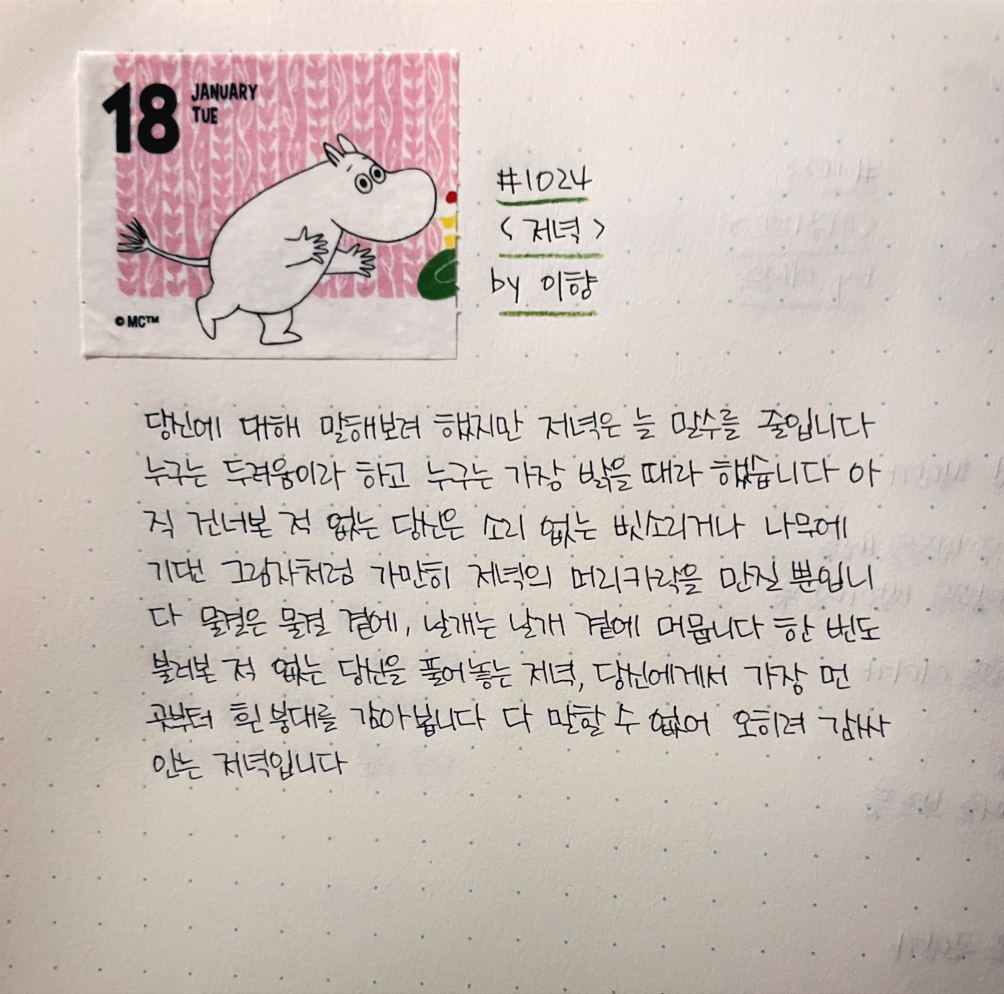 18
JANUARY
TUE
© MC™
#1024
<저녁>
by 이향
당신에 대해 말해보려 했지만 저녁은 늘 말수를 줄입니다
누구는 두려움이라 하고 누구는 가장 밝을 때라 했습니다 아
직 건너본 적 없는 당신은 소리 없는 빗소리거나 나무에
기댄 그림자처럼 가만히 저녁의 머리카락을 만질 뿐입니
다 물결은 물결 곁에, 날개는 날개 곁에 머뭅니다 한 번도
불러본 적 없는 당신을 풀어놓는 저녁, 당신에게서 가장 먼
곳부터 흰 붕대를 감아봅니다 다 말할 수 없어 오히려 감싸
안는 저녁입니다